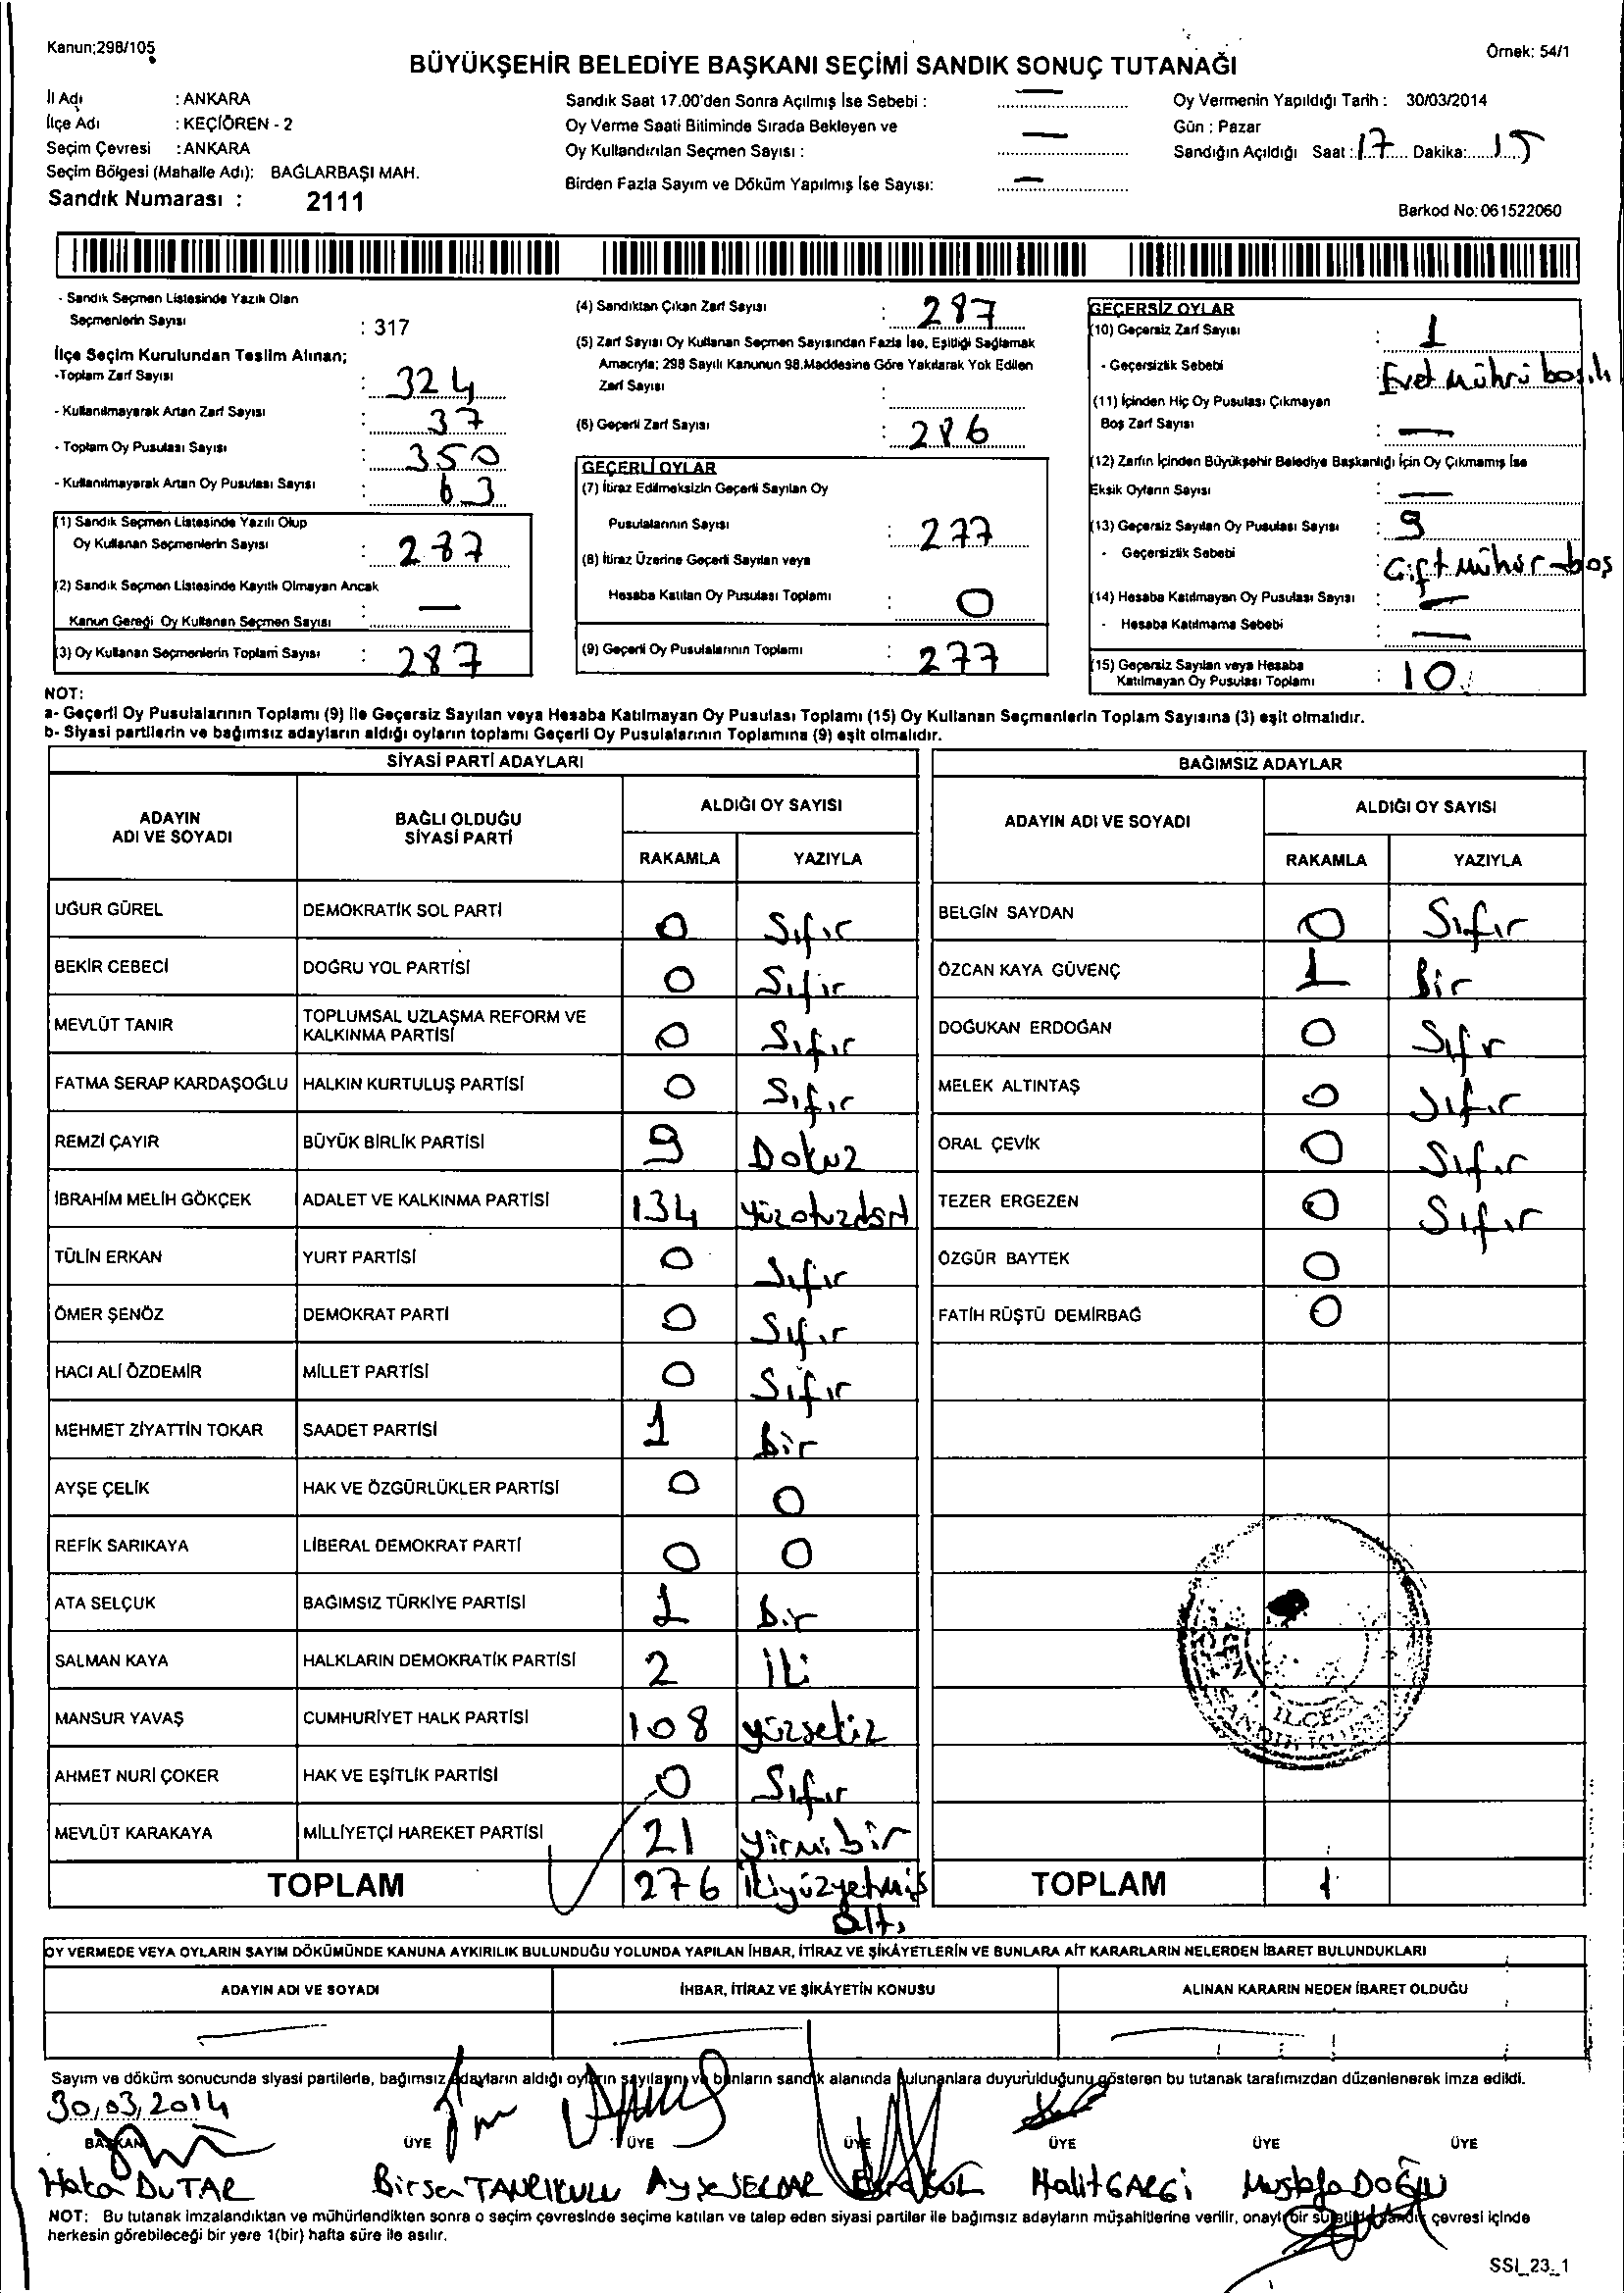 Kanun;298/105
Örnek: 54/1
BÜYÜKŞEHİR BELEDİYE BAŞKANI SEÇİMİ SANDIK SONUÇ TUTANAĞI
İl Adı : ANKARA
İlçe Adı : KEÇİÖREN - 2
Seçim Çevresi : ANKARA
Seçim Bölgesi (Mahalle Adı): BAĞLARBAŞI MAH.
Sandık Numarası : 2111
Sandık Saat 17.00'den Sonra Açılmış İse Sebebi : —
Oy Verme Saati Bitiminde Sırada Bekleyen ve
Oy Kullandırılan Seçmen Sayısı : —
Birden Fazla Sayım ve Döküm Yapılmış İse Sayısı: —
Oy Vermenin Yapıldığı Tarih : 30/03/2014
Gün : Pazar
Sandığın Açıldığı Saat : 17 Dakika: 15
Barkod No: 061522060
- Sandık Seçmen Listesinde Yazılı Olan
Seçmenlerin Sayısı : 317
İlçe Seçim Kurulundan Teslim Alınan;
-Toplam Zarf Sayısı : 324
- Kullanılmayarak Artan Zarf Sayısı : 37
- Toplam Oy Pusulası Sayısı : 350
- Kullanılmayarak Artan Oy Pusulası Sayısı : 63
(1) Sandık Seçmen Listesinde Yazılı Olup
Oy Kullanan Seçmenlerin Sayısı : 287
(2) Sandık Seçmen Listesinde Kayıtlı Olmayan Ancak
Kanun Gereği Oy Kullanan Seçmen Sayısı : —
(3) Oy Kullanan Seçmenlerin Toplam Sayısı : 287
(4) Sandıktan Çıkan Zarf Sayısı : 287
(5) Zarf Sayısı Oy Kullanan Seçmen Sayısından Fazla İse, Eşitliği Sağlamak
Amacıyla; 298 Sayılı Kanunun 98.Maddesine Göre Yakılarak Yok Edilen
Zarf Sayısı :
(6) Geçerli Zarf Sayısı : 286
GEÇERLİ OYLAR
(7) İtiraz Edilmeksizin Geçerli Sayılan Oy
Pusulalarının Sayısı : 277
(8) İtiraz Üzerine Geçerli Sayılan veya
Hesaba Katılan Oy Pusulası Toplamı : 0
(9) Geçerli Oy Pusulalarının Toplamı : 277
GEÇERSİZ OYLAR
(10) Geçersiz Zarf Sayısı : 1
- Geçersizlik Sebebi : Evet mührü basılı
(11) İçinden Hiç Oy Pusulası Çıkmayan
Boş Zarf Sayısı : —
(12) Zarfın İçinden Büyükşehir Belediye Başkanlığı İçin Oy Çıkmamış İse
Eksik Oyların Sayısı : —
(13) Geçersiz Sayılan Oy Pusulası Sayısı : 9
- Geçersizlik Sebebi : Çift mühür-boş
(14) Hesaba Katılmayan Oy Pusulası Sayısı : —
- Hesaba Katılmama Sebebi : —
(15) Geçersiz Sayılan veya Hesaba
Katılmayan Oy Pusulası Toplamı : 10
NOT:
a- Geçerli Oy Pusulalarının Toplamı (9) ile Geçersiz Sayılan veya Hesaba Katılmayan Oy Pusulası Toplamı (15) Oy Kullanan Seçmenlerin Toplam Sayısına (3) eşit olmalıdır.
b- Siyasi partilerin ve bağımsız adayların aldığı oyların toplamı Geçerli Oy Pusulalarının Toplamına (9) eşit olmalıdır.
SİYASİ PARTİ ADAYLARI
ADAYIN ADI VE SOYADI
BAĞLI OLDUĞU SİYASİ PARTİ
ALDIĞI OY SAYISI
RAKAMLA YAZIYLA
UĞUR GÜREL DEMOKRATİK SOL PARTİ 0 Sıfır
BEKİR CEBECİ DOĞRU YOL PARTİSİ 0 Sıfır
MEVLÜT TANIR TOPLUMSAL UZLAŞMA REFORM VE KALKINMA PARTİSİ 0 Sıfır
FATMA SERAP KARDAŞOĞLU HALKIN KURTULUŞ PARTİSİ 0 Sıfır
REMZİ ÇAYIR BÜYÜK BİRLİK PARTİSİ 9 Dokuz
İBRAHİM MELİH GÖKÇEK ADALET VE KALKINMA PARTİSİ 134 yüzotuzdört
TÜLİN ERKAN YURT PARTİSİ 0 Sıfır
ÖMER ŞENÖZ DEMOKRAT PARTİ 0 Sıfır
HACI ALİ ÖZDEMİR MİLLET PARTİSİ 0 Sıfır
MEHMET ZİYATTİN TOKAR SAADET PARTİSİ 1 bir
AYŞE ÇELİK HAK VE ÖZGÜRLÜKLER PARTİSİ 0 0
REFİK SARIKAYA LİBERAL DEMOKRAT PARTİ 0 0
ATA SELÇUK BAĞIMSIZ TÜRKİYE PARTİSİ 1 bir
SALMAN KAYA HALKLARIN DEMOKRATİK PARTİSİ 2 iki
MANSUR YAVAŞ CUMHURİYET HALK PARTİSİ 108 yüzsekiz
AHMET NURİ ÇOKER HAK VE EŞİTLİK PARTİSİ 0 Sıfır
MEVLÜT KARAKAYA MİLLİYETÇİ HAREKET PARTİSİ 21 yirmibir
TOPLAM 276 ikiyüzyetmiş altı
BAĞIMSIZ ADAYLAR
ADAYIN ADI VE SOYADI
ALDIĞI OY SAYISI
RAKAMLA YAZIYLA
BELGİN SAYDAN 0 Sıfır
ÖZCAN KAYA GÜVENÇ 1 Bir
DOĞUKAN ERDOĞAN 0 Sıfr
MELEK ALTINTAŞ 0 Sıfır
ORAL ÇEVİK 0 Sıfır
TEZER ERGEZEN 0 Sıfır
ÖZGÜR BAYTEK 0
FATİH RÜŞTÜ DEMİRBAĞ 0
TOPLAM 1
OY VERMEDE VEYA OYLARIN SAYIM DÖKÜMÜNDE KANUNA AYKIRILIK BULUNDUĞU YOLUNDA YAPILAN İHBAR, İTİRAZ VE ŞİKÂYETLERİN VE BUNLARA AİT KARARLARIN NELERDEN İBARET BULUNDUKLARI
ADAYIN ADI VE SOYADI İHBAR, İTİRAZ VE ŞİKÂYETİN KONUSU ALINAN KARARIN NEDEN İBARET OLDUĞU
Sayım ve döküm sonucunda siyasi partilerle, bağımsız adayların aldığı oyların sayılarını ve bunların sandık alanında bulunanlara duyurulduğunu gösteren bu tutanak tarafımızdan düzenlenerek imza edildi.
30.03.2014
BAŞKAN ÜYE ÜYE ÜYE ÜYE ÜYE ÜYE
DUTAR Birsen TANRIKULU Ayşe SERDAR Halit Mustafa
NOT: Bu tutanak imzalandıktan ve mühürlendikten sonra o seçim çevresinde seçime katılan ve talep eden siyasi partiler ile bağımsız adayların müşahitlerine verilir, onaylı bir sandık çevresi içinde
herkesin görebileceği bir yere 1(bir) hafta süre ile asılır.
SSI_23_1